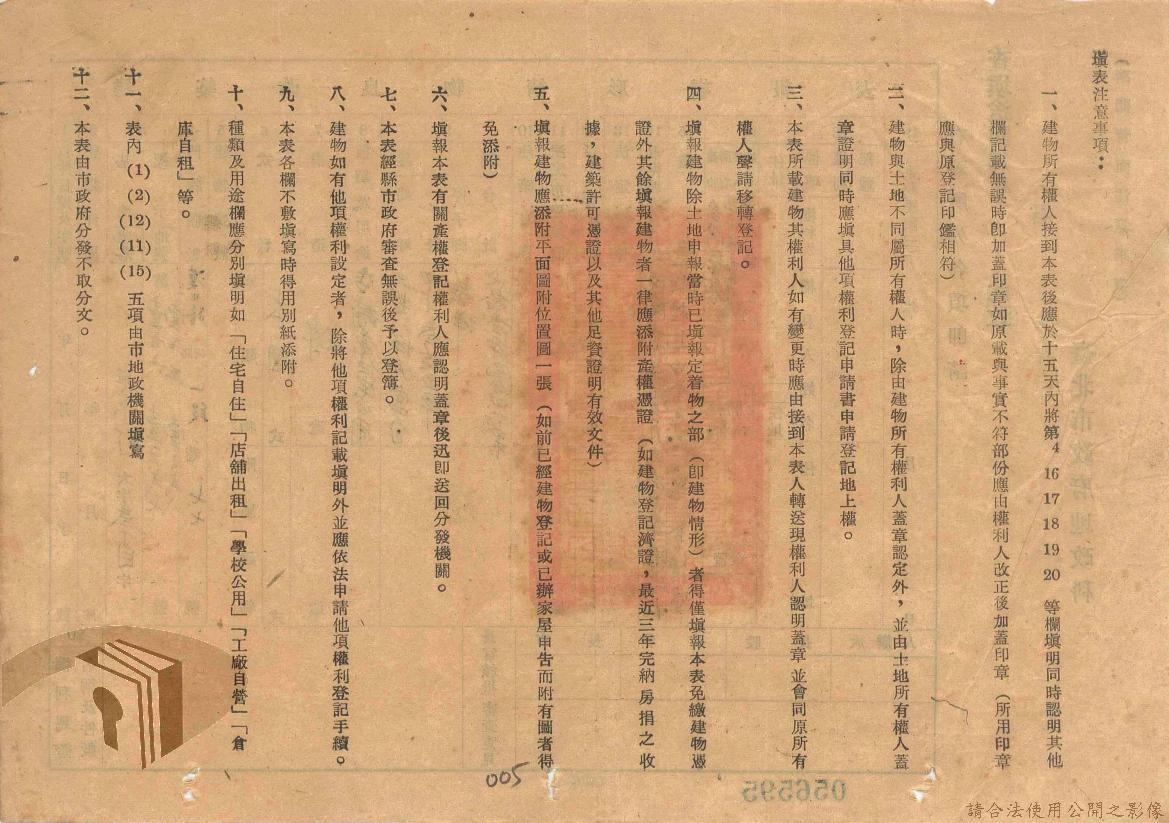 塡表注意事項：
一、建物所有權人接到本表後應於十五天內將第 4 16 17 18 19 20 等欄塡明同時認明其他
欄記載無誤時卽加蓋印章如原載與事實不符部份應由權利人改正後加蓋印章（所用印章
應與原登記印鑑相符）
二、建物與土地不同屬所有權人時，除由建物所有權利人蓋章認定外，並由土地所有權人蓋
章證明同時應塡具他項權利登記申請書申請登記地上權。
三、本表所載建物其權利人如有變更時應由接到本表人轉送現權利人認明蓋章並會同原所有
權人聲請移轉登記。
四、塡報建物除土地申報當時已塡報定着物之部（卽建物情形）者得僅塡報本表免繳建物憑
證外其餘塡報建物者一律應添附產權憑證（如建物登記濟證，最近三年完納房捐之收
據，建築許可憑證以及其他足資證明有效文件）
五、塡報建物應添附平面圖附位置圖一張（如前已經建物登記或已辦家屋申告而附有圖者得
免添附）
六、塡報本表有關產權登記權利人應認明蓋章後迅卽送回分發機關。
七、本表經縣市政府審查無誤後予以登簿。
八、建物如有他項權利設定者，除將他項權利記載塡明外並應依法申請他項權利登記手續。
九、本表各欄不敷塡寫時得用別紙添附。
十、種類及用途欄應分別塡明如「住宅自住」「店舖出租」「學校公用」「工廠自營」「倉
庫自租」等。
十一、表內 (1) (2) (12) (11) (15) 五項由市地政機關塡寫
十二、本表由市政府分發不取分文。
005
056595
請合法使用公開之影像